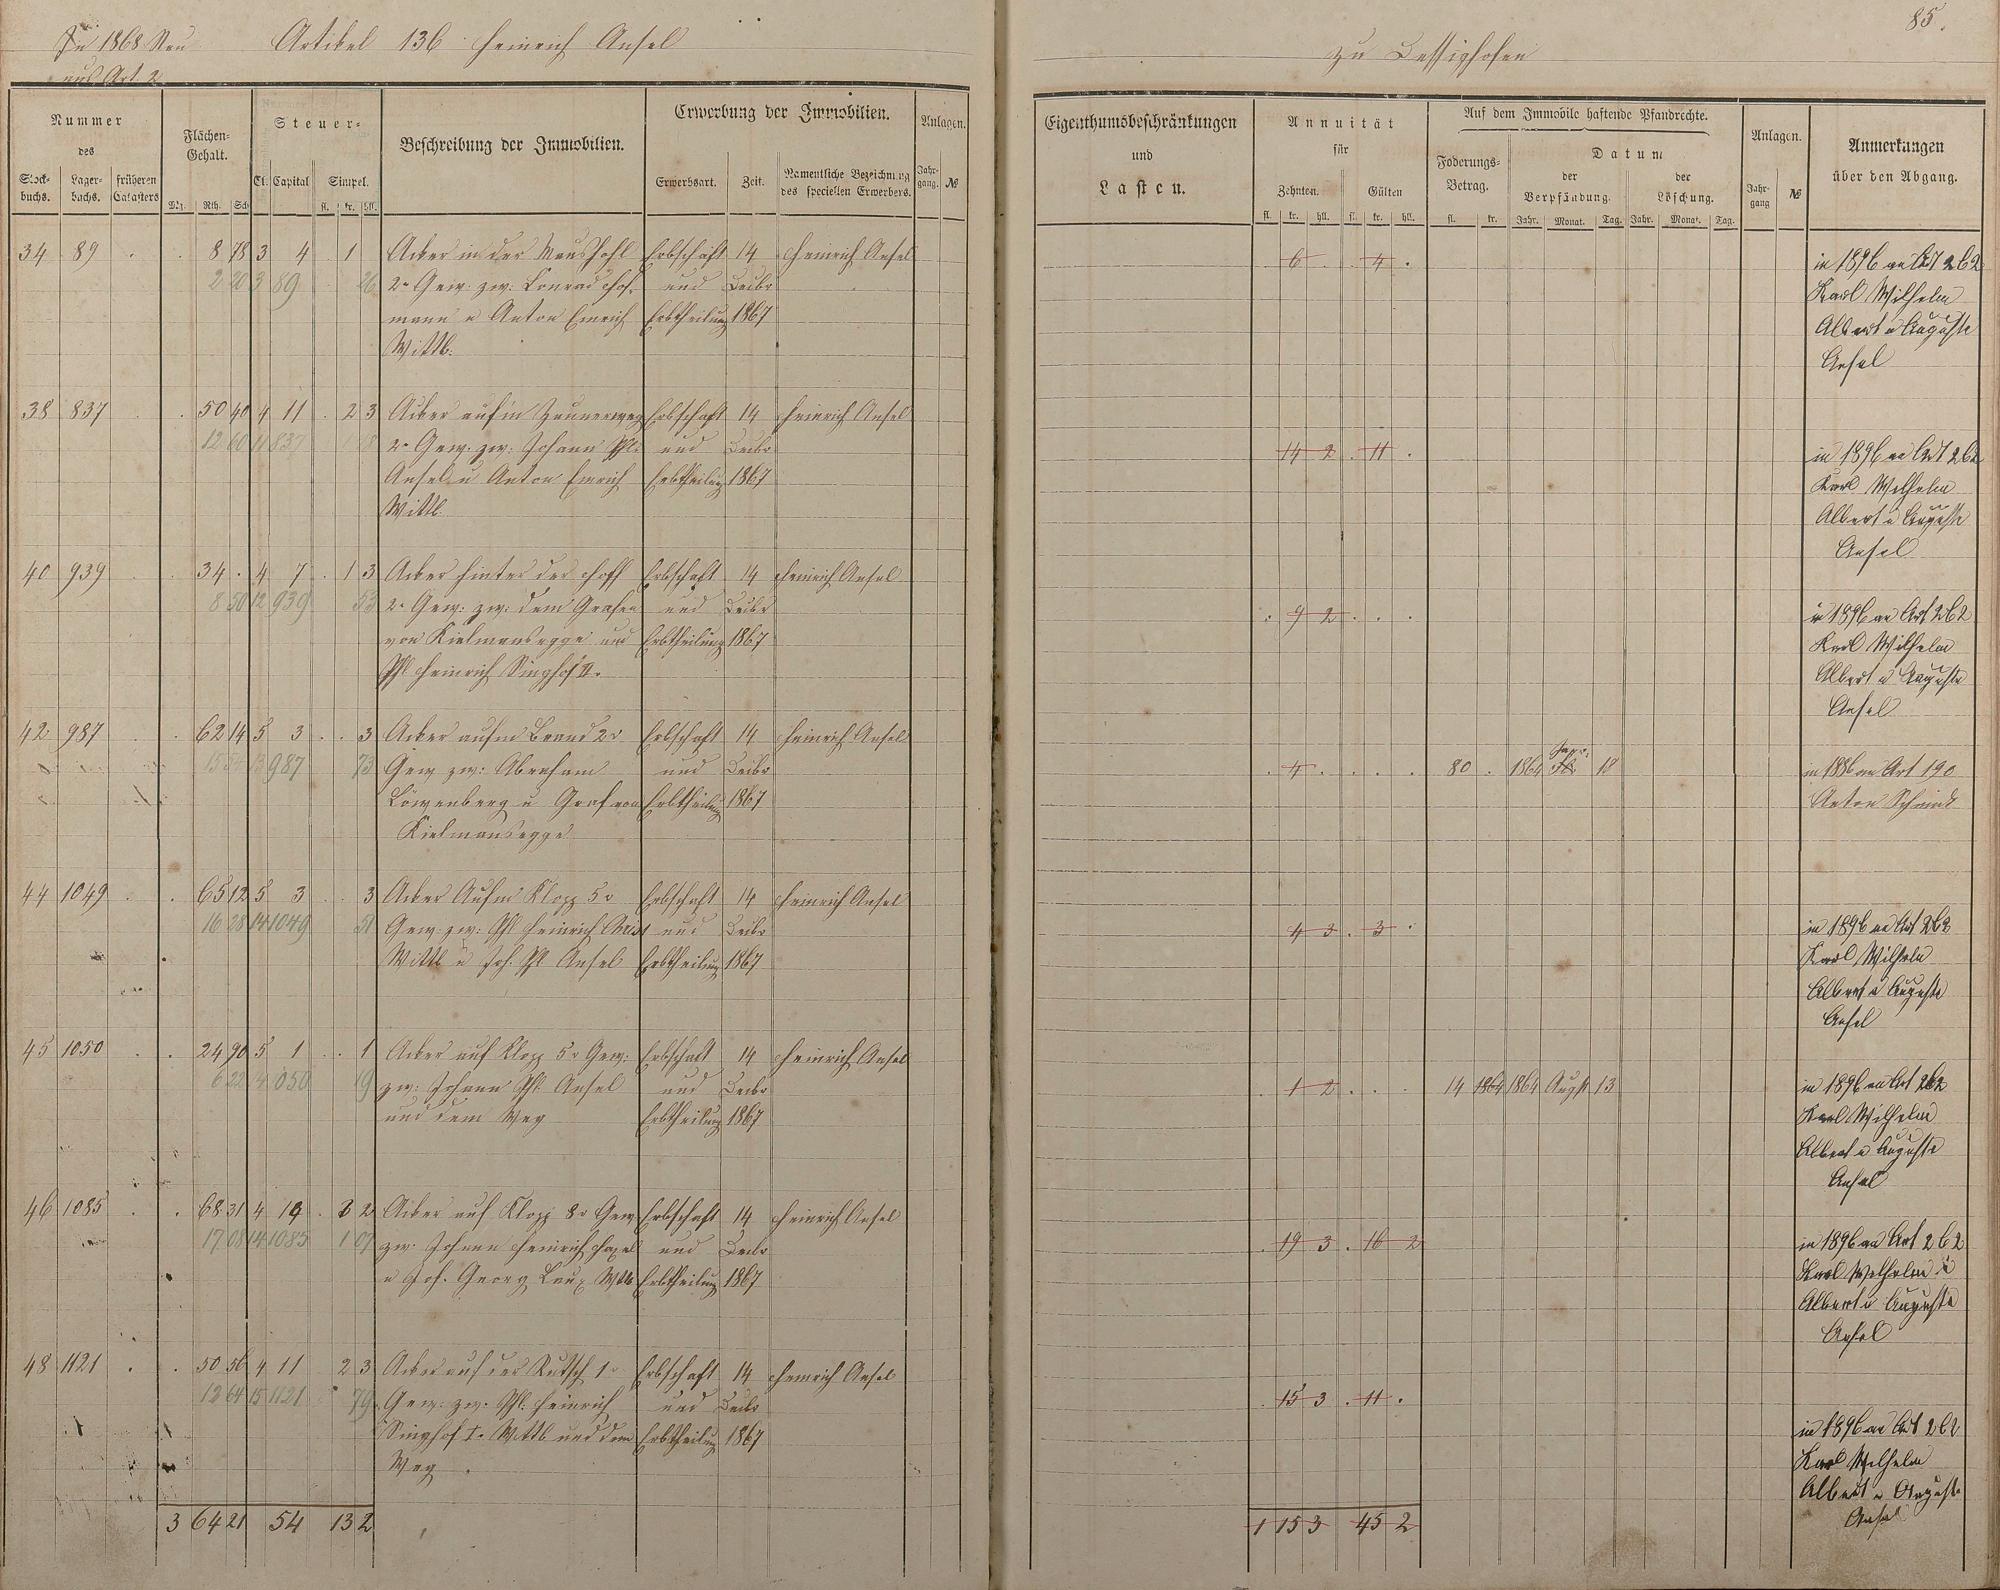 In 1868 Neu
aus Art. 2
Artikel 136 Heinrich Ansel
85.
zu Dessighofen
Nummer
des
Stock-
buchs.
Lager-
buchs.
früheren
Catasters
Flächen-
Gehalt.
Mg. Rth. Sch.
Steuer-
Cl. Capital Simpel.
fl. kr. hll.
Beschreibung der Immobilien.
Erwerbung der Immobilien.
Erwerbsart. Zeit.
Namentliche Bezeichnung
des speciellen Erwerbers.
Anlagen.
Jahr-
gang. №
Eigenthumsbeschränkungen
und
Lasten.
Annuität
für
Zehnten. Gülten
fl. kr. hll. fl. kr. hll.
Auf dem Immobile haftende Pfandrechte.
Foderungs-
Betrag.
fl. kr.
Datum
der
Verpfändung.
der
Löschung.
Jahr. Monat. Tag. Jahr. Monat. Tag.
Anlagen.
Jahr-
gang №
Anmerkungen
über den Abgang.
34 89 . . 8 78 3 4 . 1 Acker in der Maushohl Erbschaft 14 Heinrich Ansel
2 20 3 89 26 2r Gew: zw: Conrad Hof- und Decbr
mann u Anton Emrich Erbtheilung 1867
Wittb.
6 . . 4 .
in 1896 an Art 262
Karl Wilhelm
Albert u Auguste
Ansel
38 837 . . 50 40 4 11 . 2 3 Acker auf'm Zaunerweg Erbschaft 14 Heinrich Ansel
12 60 11 837 1 18 2r Gew. zw: Johann Phl: und Decbr
Ansel u Anton Emrich Erbtheilung 1867
Wittb.
14 2 . 11 .
in 1896 an Art 262
Karl Wilhelm
Albert u Auguste
Ansel
40 939 . . 34 . 4 7 . 1 3 Acker hinter der Hoff Erbschaft 14 Heinrich Ansel
8 50 12 939 53 2r Gew: zw: dem Grafen und Decbr
von Kielmansegge und Erbtheilung 1867
Phl Heinrich Singhof II.
. 9 2 . . .
in 1896 an Art 262
Karl Wilhelm
Albert u Auguste
Ansel
42 987 . . 62 14 5 3 . . 3 Acker auf'm Brand 2r Erbschaft 14 Heinrich Ansel
15 54 13 987 73 Gew zw: Abraham und Decbr
Löwenberg u Graf von Erbtheilung 1867
Kielmansegge
. 4 . . . . 80 . 1864 18
in 1886 an Art 190
Anton Schmidt
44 1049 . . 65 12 5 3 . . 3 Acker Auf'm Klopp 5r Erbschaft 14 Heinrich Ansel
16 28 14 1049 51 Gew: zw: Phl Heinrich und Decbr
Wittb u Joh. Phl Ansel Erbtheilung 1867
4 3 . 3 .
in 1896 an Art 262
Karl Wilhelm
Albert u Auguste
Ansel
45 1050 . . 24 90 5 1 . . 1 Acker auf Klopp 5r Gew: Erbschaft 14 Heinrich Ansel
6 22 14 1050 19 zw: Johann Phl. Ansel und Decbr
und dem Weg Erbtheilung 1867
. 1 2 . . . 14 1864 1864 Augst 13
in 1896 an Art 262
Karl Wilhelm
Albert u Auguste
Ansel
46 1085 . . 68 31 4 19 . 3 2 Acker auf Klopp 8r Gew Erbschaft 14 Heinrich Ansel
17 08 14 1085 1 07 zw. Johann Heinrich und Decbr
u Joh. Georg Laux Wtb Erbtheilung 1867
. 19 3 . 16 2
in 1896 an Art 262
Karl Wilhelm u
Albert u Auguste
Ansel
48 1121 . . 50 56 4 11 2 3 Acker auf der Rutsch 1r Erbschaft 14 Heinrich Ansel
12 64 15 1121 79 Gew: zw. Phl. Heinrich und Decbr
Singhof I. Wittb und dem Erbtheilung 1867
Weg
. 15 3 . 11 .
in 1896 an Art 262
Karl Wilhelm
Albert u Auguste
Ansel
3 64 21 54 13 2
1 15 3 45 2